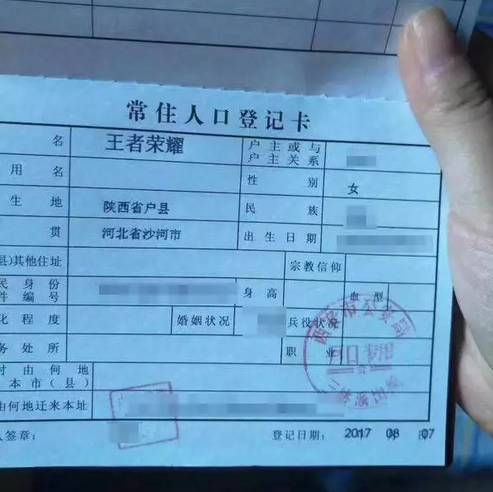 常住人口登记卡
名 王者荣耀 户主或与户主关系
用名 性别 女
生地 陕西省户县 民族
贯 河北省沙河市 出生日期
县)其他住址 宗教信仰
民身份件编号 身高 血型
化程度 婚姻状况 兵役状况
务处所 职业
时由何地本市(县)
由何地迁来本址
人签章: 登记日期: 2017 08 07
西安市公安局